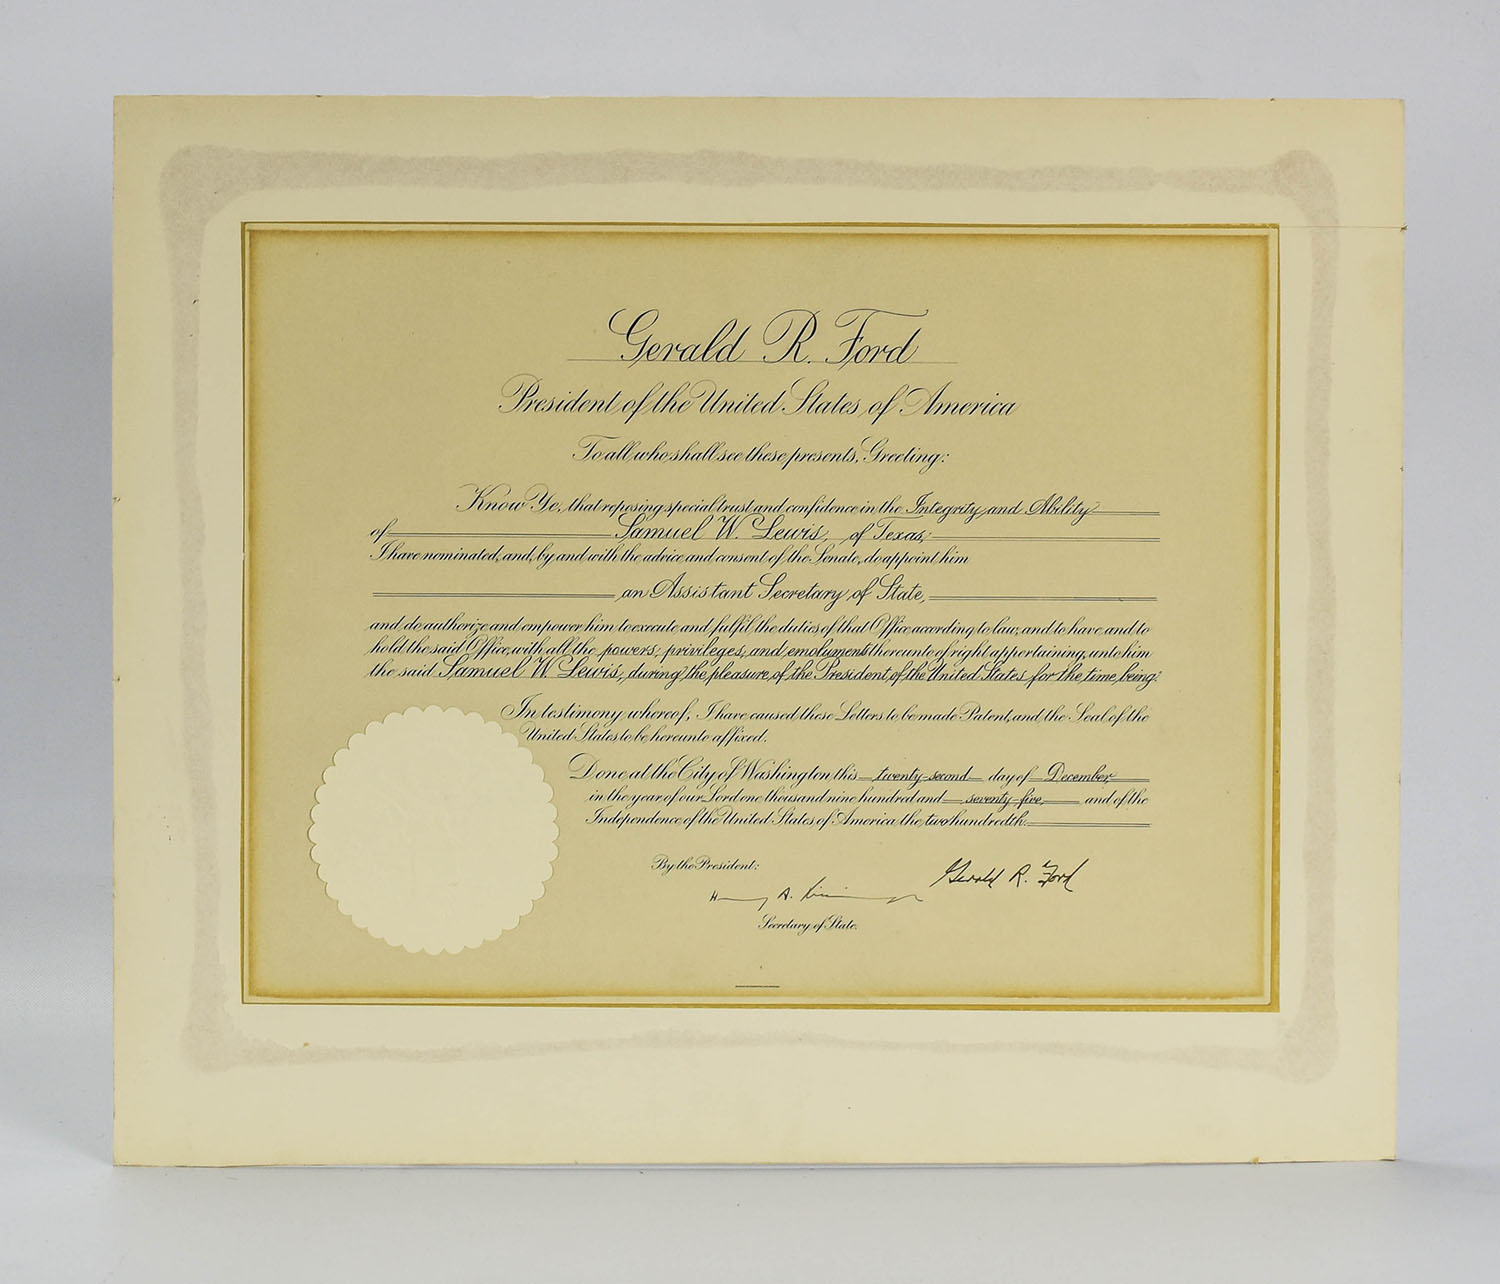 Gerald R. Ford
President of the United States of America
To all who shall see these presents, Greeting:
Know Ye, that reposing special trust and confidence in the Integrity and Ability
of Samuel W. Lewis, of Texas,
I have nominated, and, by and with the advice and consent of the Senate, do appoint him
an Assistant Secretary of State,
and do authorize and empower him to execute and fulfil the duties of that Office according to law, and to have and to
hold the said Office, with all the powers, privileges, and emoluments thereunto of right appertaining, unto him
the said Samuel W. Lewis, during the pleasure of the President of the United States for the time being.
In testimony whereof, I have caused these Letters to be made Patent, and the Seal of the
United States to be hereunto affixed.
Done at the City of Washington this twenty-second day of December,
in the year of our Lord one thousand nine hundred and seventy-five, and of the
Independence of the United States of America the two hundredth.
By the President:
Gerald R. Ford
Henry A. Kissinger
Secretary of State.